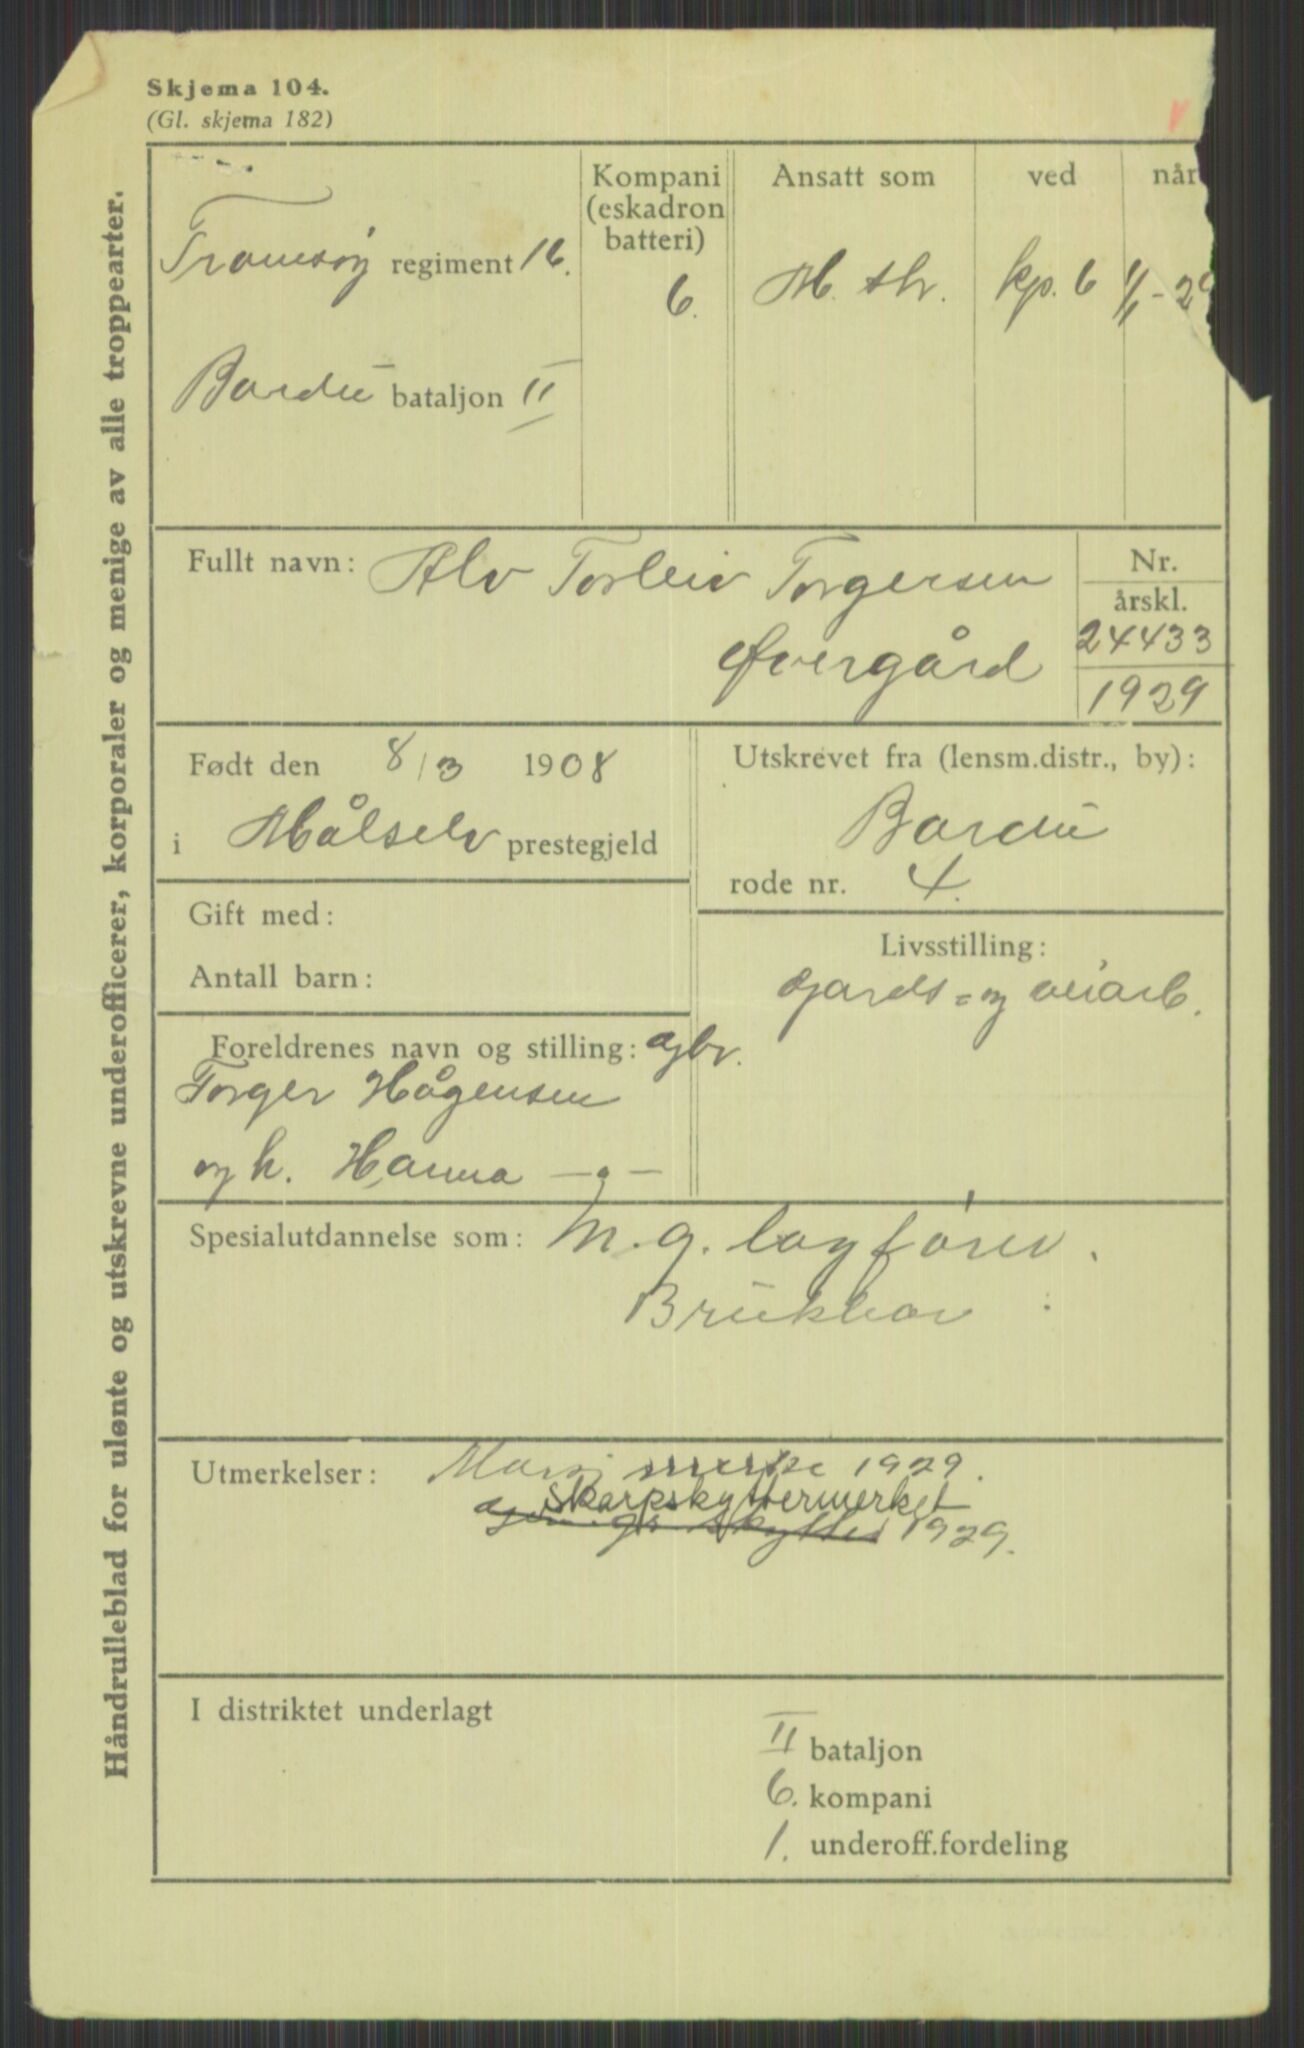 Skjema 104.
(Gl. skjema 182)
Håndrulleblad for ulønte og utskrevne underofficerer, korporaler og menige av alle troppearter.
Kompani (eskadron batteri)
Ansatt som
ved
når
Tromsøy regiment 16.
6.
M. str.
kp. 6
1/1 - 29
Bardu bataljon II
Fullt navn: Alv Torleiv Torgersen
Øvergård
Nr.
årskl.
24433
1929
Født den 8/3 1908
i Målselv prestegjeld
Utskrevet fra (lensm.distr., by):
Bardu
rode nr. 4.
Gift med:
Antall barn:
Livsstilling:
gards- og veiarb.
Foreldrenes navn og stilling: gbr.
Torger Hågensen
og h. Hanna —"—
Spesialutdannelse som: M. g. lagfører.
Brukbar
Utmerkelser: Marsj merke 1929.
Skarpskyttermerket
1929.
I distriktet underlagt
II bataljon
6. kompani
1. underoff.fordeling